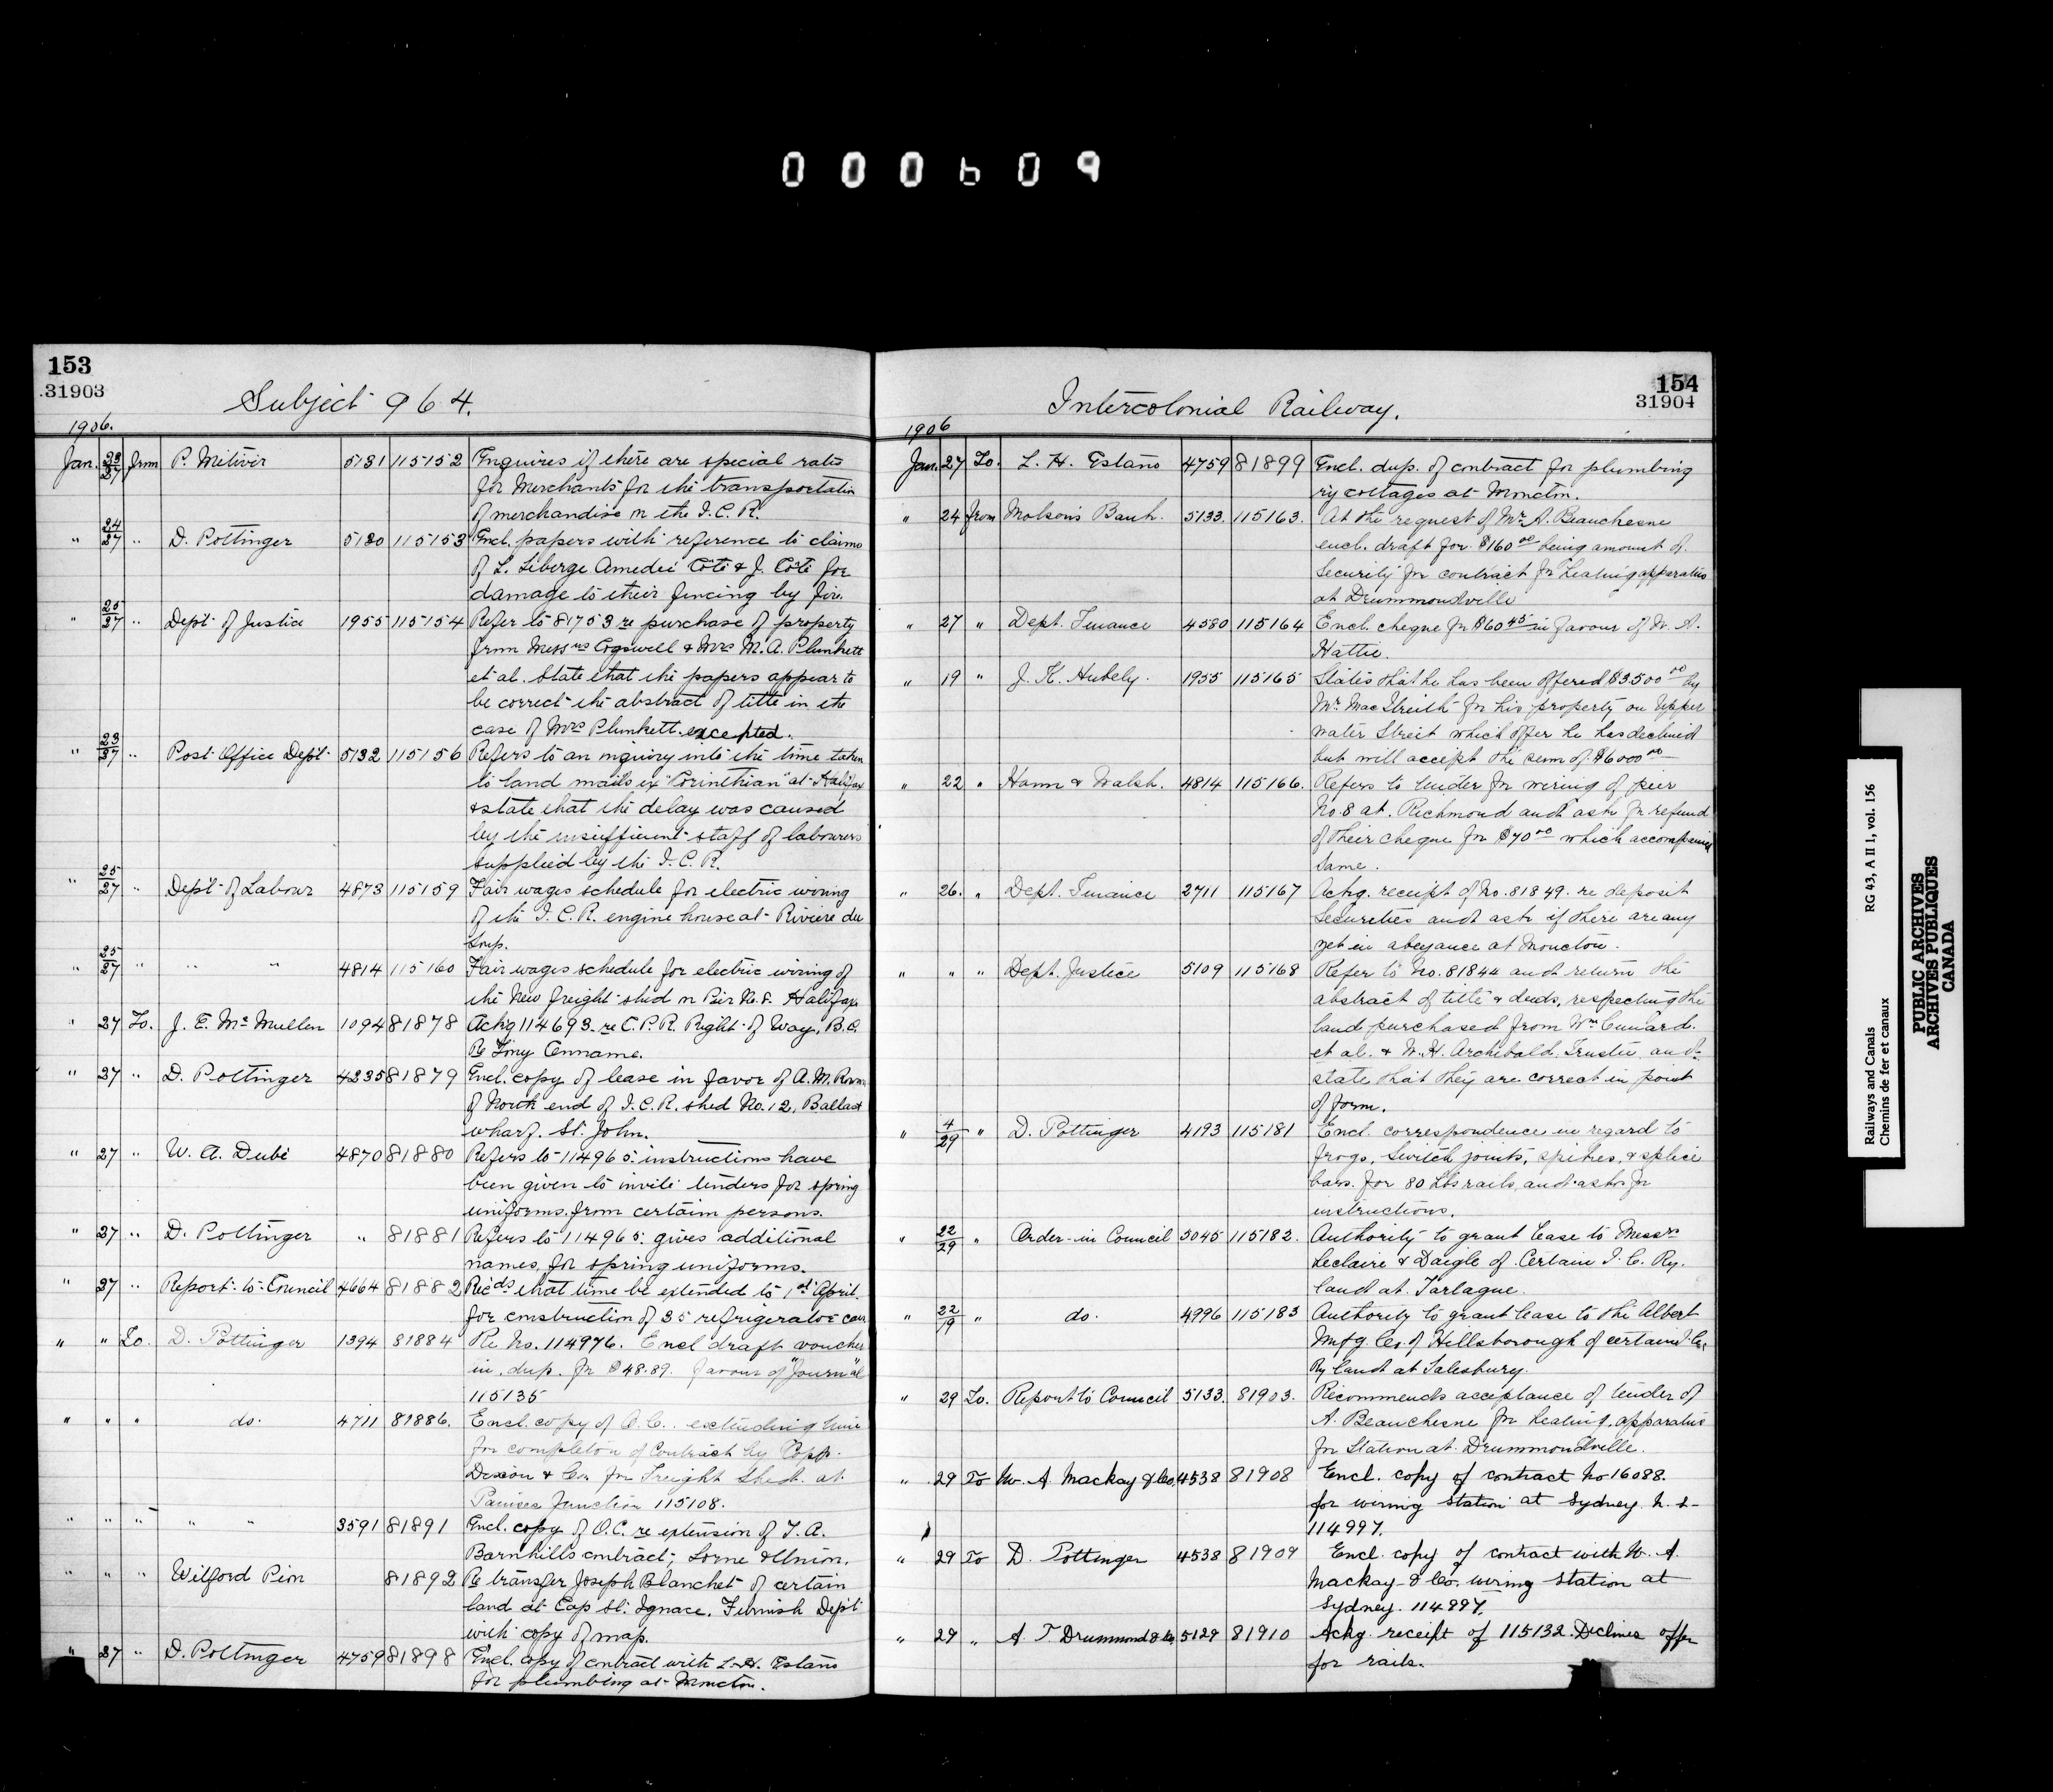 000609
153
31903
Subject 964.
1906.
Jan. 23/27 from P. 5131 115152 Enquires if there are special rates
for Merchants for the transportation
of merchandise on the I.C.R.
" 24/27 " D. Pottinger 5130 115153 Encl. papers with reference to claims
of L. Liberge Amedée Côté & J. Côté for
damage to their fencing by fire.
" 25/27 " Dept. of Justice 1955 115154 Refer to 81753 re purchase of property
from Messrs Cogswell & Mrs M. A. Plunkett
et al. State that the papers appear to
be correct the abstract of title in the
case of Mrs Plunkett excepted.
" 23/27 " Post Office Dept. 5132 115156 Refers to an inquiry into the time taken
to land mails ex "Corinthian" at Halifax
& state that the delay was caused
by the insufficient staff of labourers
supplied by the I.C.R.
" 25/27 " Dept. of Labour 4873 115159 Fair wages schedule for electric wiring
of the I.C.R. engine house at Riviere du
Loup.
" 25/27 " " " 4814 115160 Fair wages schedule for electric wiring of
the New freight shed on Pier No. 8. Halifax
" 27 To. J. E. McMullen 1094 81878 Ackg 114693 re C.P.R. Right of Way, B.C.
Re Tony
" 27 " D. Pottinger 4235 81879 Encl. copy of lease in favor of A. M. Rowan
of North end of I.C.R. shed No. 12, Ballast
wharf. St. John.
" 27 " W. A. Dubé 4870 81880 Refers to 114965: instructions have
been given to invite tenders for spring
uniforms from certain persons.
" 27 " D. Pottinger " 81881 Refers to 114965: gives additional
names for spring uniforms.
" 27 " Report to Council 4664 81882 Recds that time be extended to 1st April
for construction of 35 refrigerator cars
" " To. D. Pottinger 1394 81884 Re No. 114976. Encl draft voucher
in dup. for $48.89. favour of "Journal"
115135
" " " do. 4711 81886. Encl. copy of O.C. extending time
for completion of Contract by Copp.
Dixon & Co. for Freight Shed at
Painsec Junction 115108.
" " " " " 3591 81891 Encl. copy of O.C. re extension of T. A.
Barnhills contract; Lorne & Union.
" " " Wilford Pion 81892 Re transfer Joseph Blanchet of certain
land at Cap St. Ignace. Furnish Dept
with copy of map.
" 27 " D. Pottinger 4759 81898 Encl. copy of contract with L. H. Estano
for plumbing at Moncton.
154
31904
Intercolonial Railway.
1906
Jan. 27 To. L. H. Estano 4759 81899 Encl. dup. of contract for plumbing
ry cottages at Moncton.
" 24 from Molson's Bank. 5133. 115163. At the request of Mr. A. Beauchesne
encl. draft for $160.00 being amount of
Security for contract for heating apparatus
at Drummondville
" 27 " Dept. Finance 4580 115164 Encl. cheque for $60.45 in favour of W. A.
Hattie.
" 19 " J. K. Hubely. 1955 115165 States that he has been offered $3500.00 by
Mr. MacIlreith for his property on Upper
water Street which offer he has declined
but will accept the sum of $6000.00
" 22 " Hann & Walsh. 4814 115166. Refers to tender for wiring of pier
No. 8 at. Richmond and ask for refund
of their cheque for $70.00 which accompanied
same.
" 26. " Dept. Finance 2711 115167 Ackg. receipt of No. 81849. re deposit
Securities and ask if there are any
yet in abeyance at Moncton.
" " " Dept. Justice 5109 115168 Refer to No. 81844 and return the
abstract of title & deeds, respecting the
land purchased from Wm Cunard.
et al. & W. H. Archibald. Trustee and
state that they are correct in point
of form.
" 4/29 " D. Pottinger 4193 115181 Encl. correspondence in regard to
frogs, switch joints, spikes, & splice
bars. for 80 lbs rails, and asks for
instructions.
" 22/29 " Order-in Council 5045 115182. Authority to grant lease to Messrs
Leclaire & Daigle of Certain I. C. Ry.
land at. Tartague.
" 22/19 " do. 4996 115183 Authority to grant lease to the Albert
Mnfg. Co. of Hillsborough of certain I.C.
Ry land at Salesbury.
" 29 To. Report to Council 5133. 81903. Recommends acceptance of tender of
A. Beauchesne for heating apparatus
for Station at. Drummondville.
" 29 To W. A. Mackay & Co, 4538 81908 Encl. copy of contract No 16088.
for wiring station at Sydney. N. S-
114997.
" 29 To D. Pottinger 4538 81909 Encl. copy of contract with W. A.
Mackay & Co. wiring station at
Sydney. 114997.
" 29 " A. T. Drummond & Co 5129 81910 Ackg. receipt of 115132. Declines offer
for rails.
Railways and Canals RG 43, A II 1, vol. 156
Chemins de fer et canaux
PUBLIC ARCHIVES
ARCHIVES PUBLIQUES
CANADA